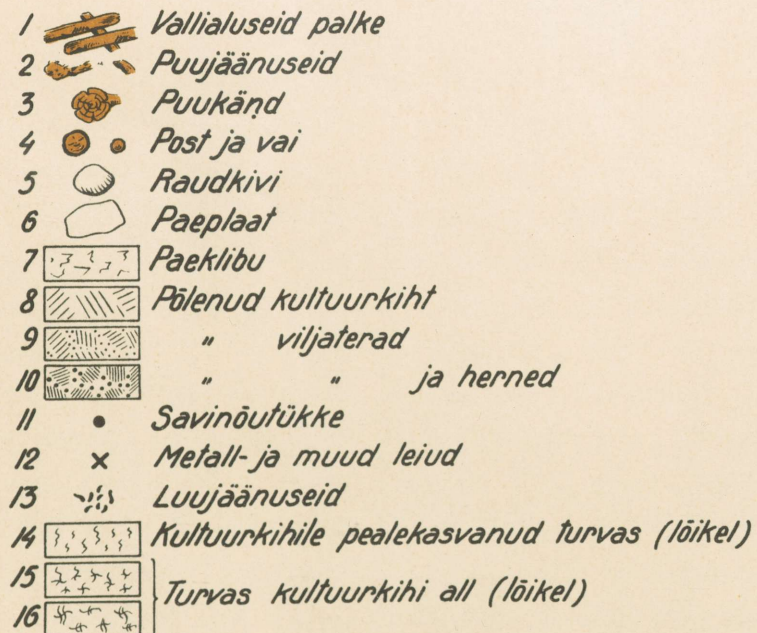 1 Vallialuseid palke
2 Puujäänuseid
3 Puukänd
4 Post ja vai
5 Raudkivi
6 Paeplaat
7 Paeklibu
8 Põlenud kultuurkiht
9 " viljaterad
10 " " ja herned
11 Savinõutükke
12 Metall- ja muud leiud
13 Luujäänuseid
14 Kultuurkihile pealekasvanud turvas (lõikel)
15
Turvas kultuurkihi all (lõikel)
16